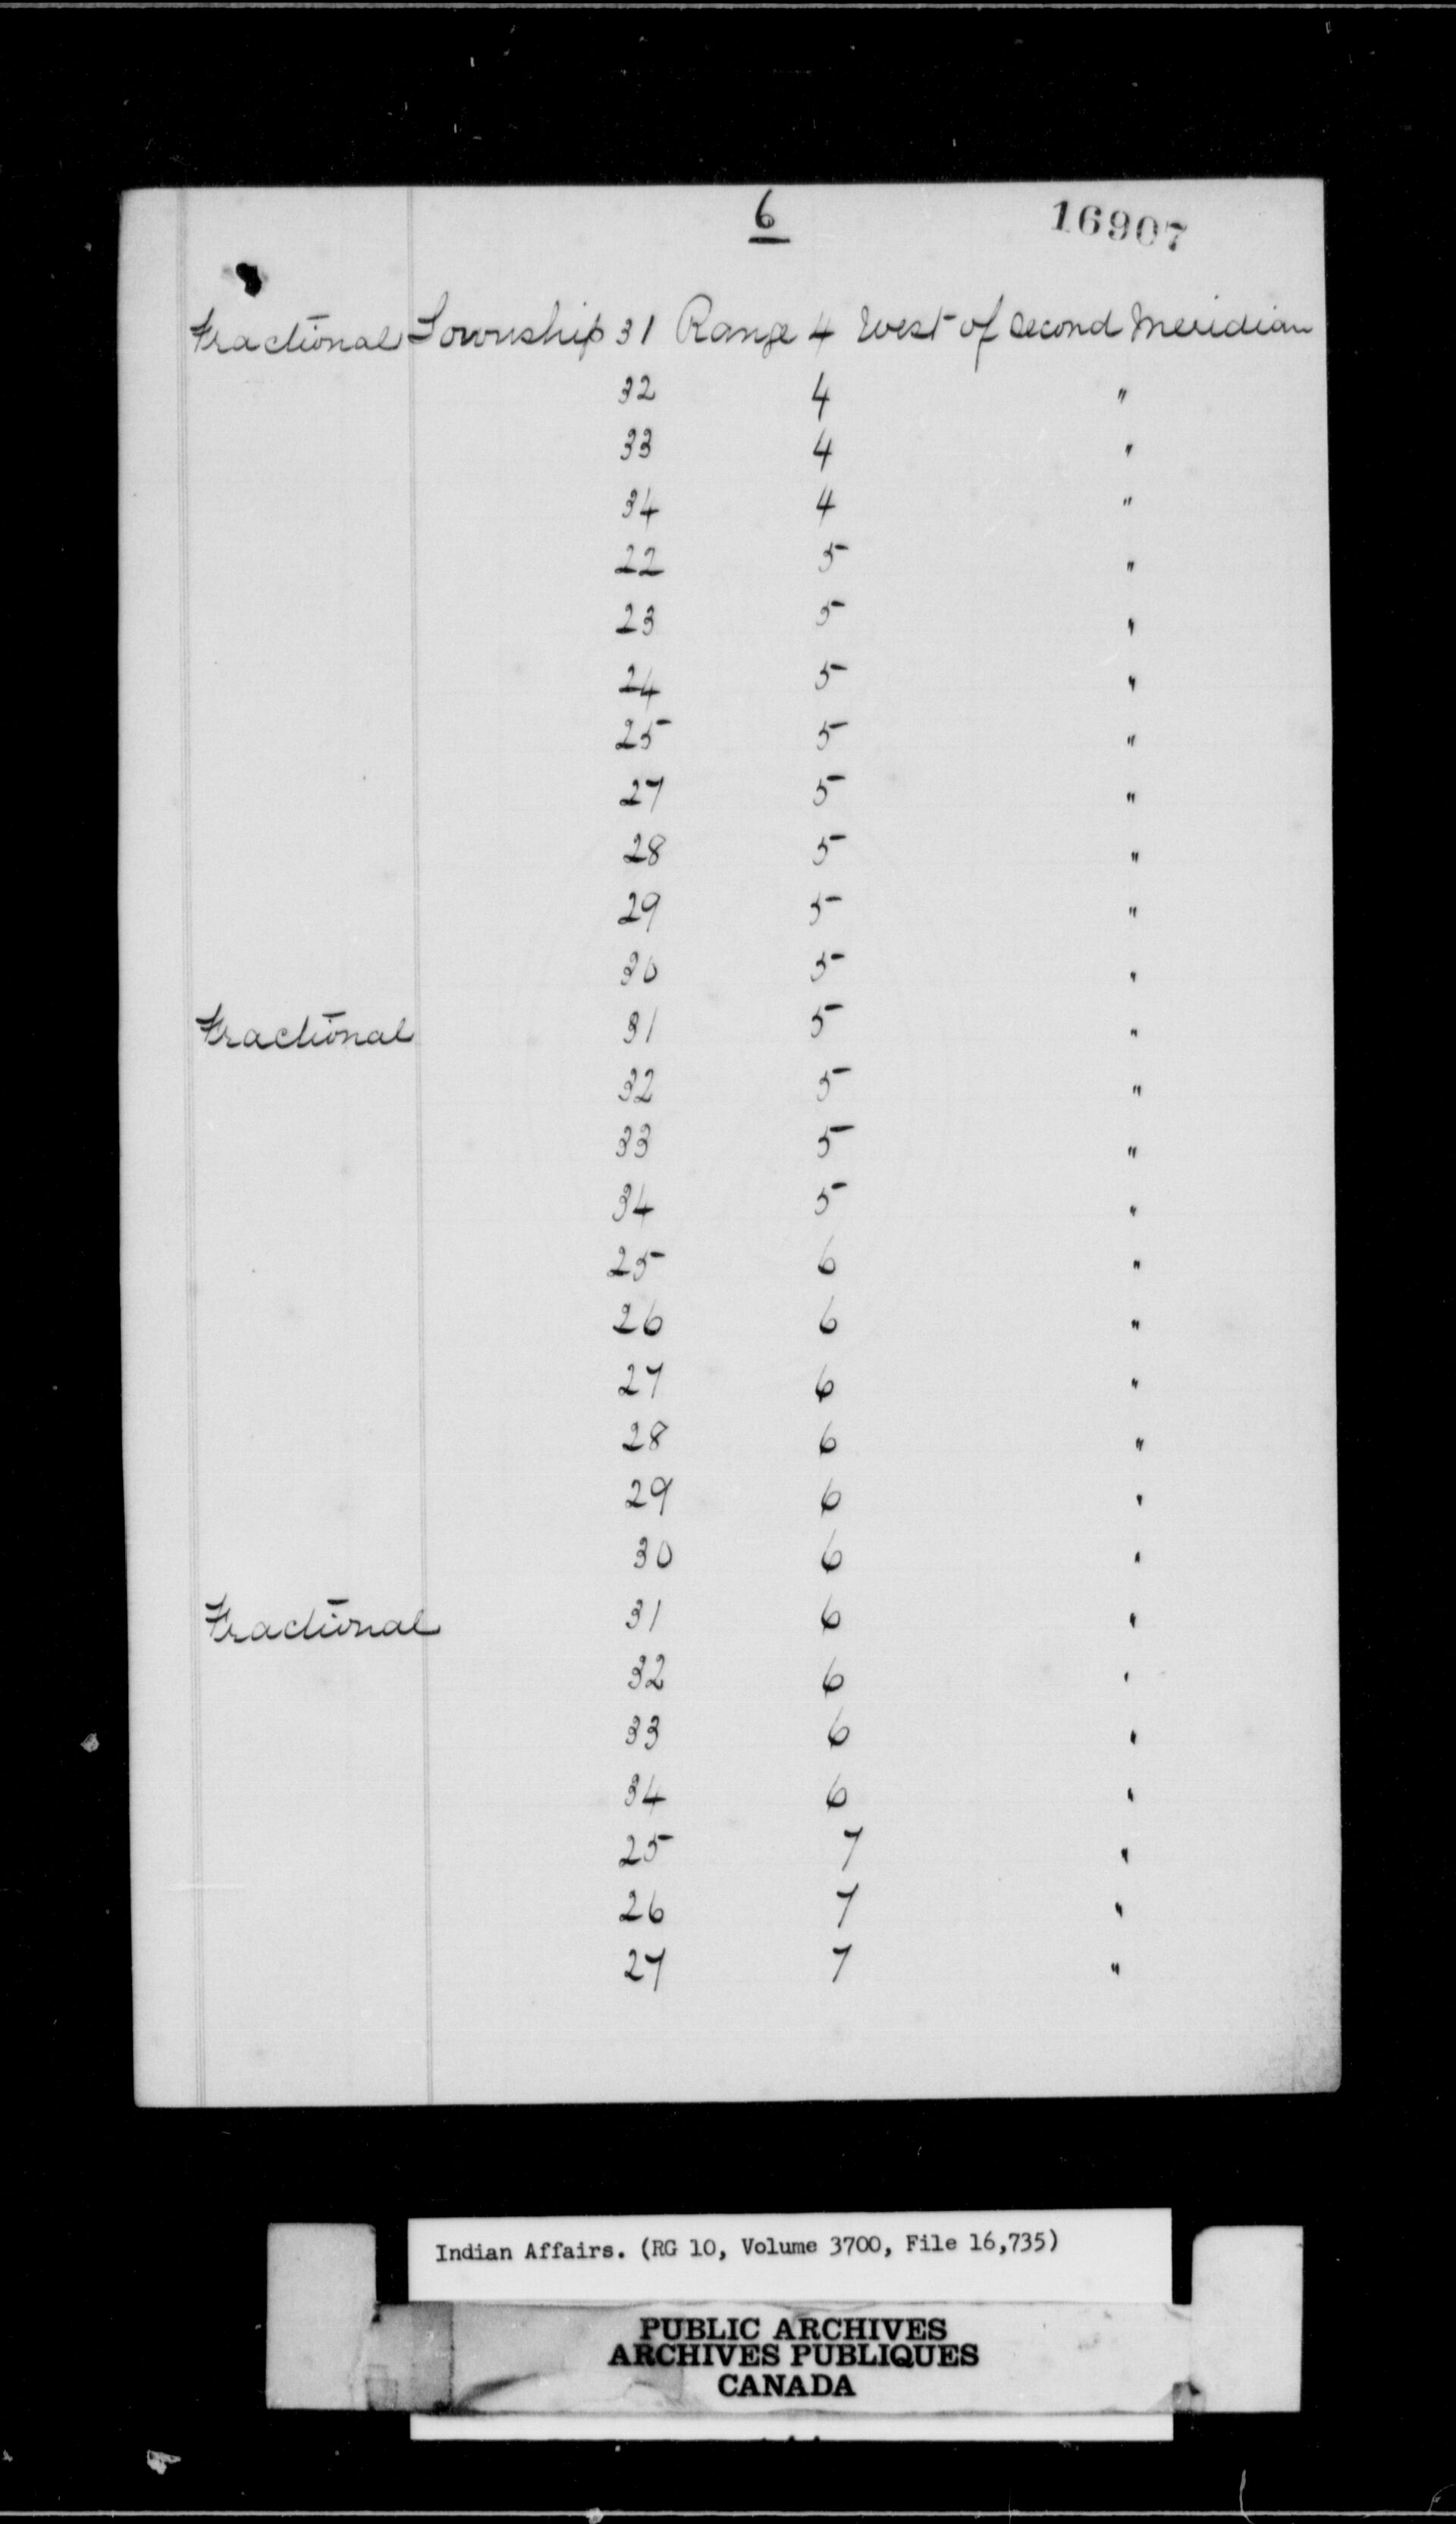 6
16907
Fractional Township 31 Range 4 West of second Meridian
32 4 "
33 4 "
34 4 "
22 5 "
23 5 "
24 5 "
25 5 "
27 5 "
28 5 "
29 5 "
30 5 "
Fractional 31 5 "
32 5 "
33 5 "
34 5 "
25 6 "
26 6 "
27 6 "
28 6 "
29 6 "
30 6 "
Fractional 31 6 "
32 6 "
33 6 "
34 6 "
25 7 "
26 7 "
27 7 "
Indian Affairs. (RG 10, Volume 3700, File 16,735)
PUBLIC ARCHIVES
ARCHIVES PUBLIQUES
CANADA